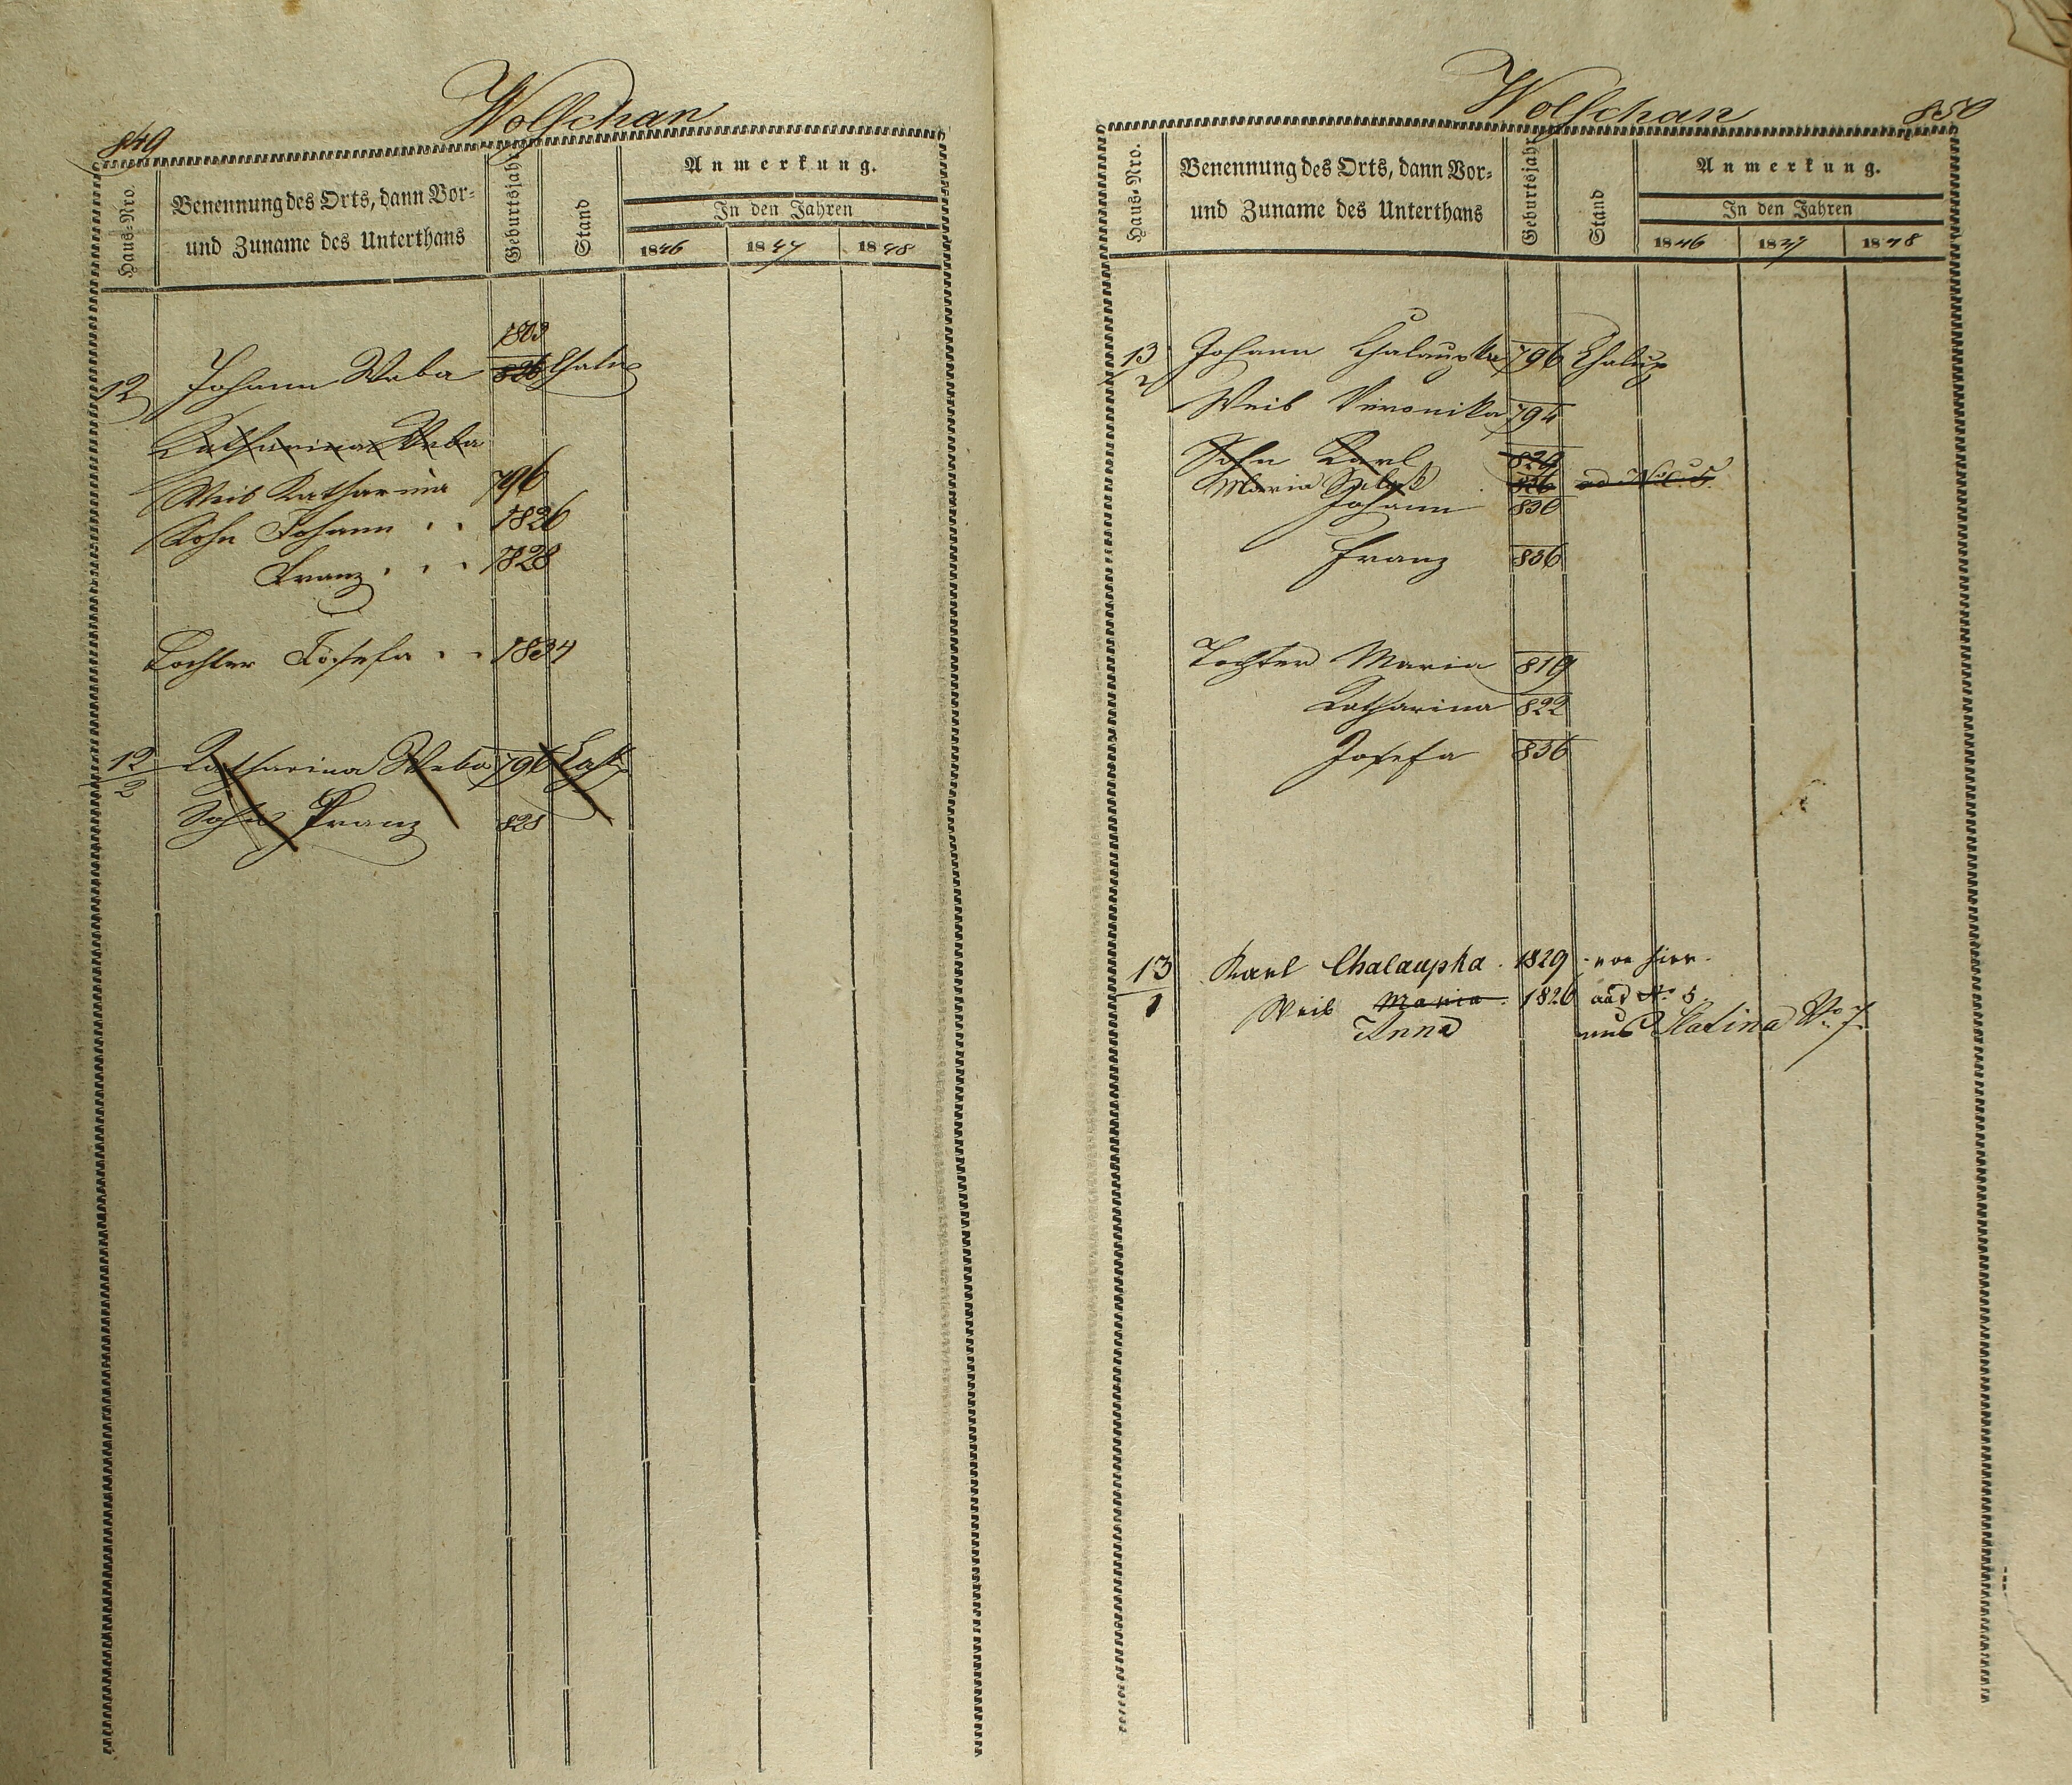 849
Wolschan
Haus-Nro.
Benennung des Orts, dann Vor-
und Zuname des Unterthans
Geburtsjahr
Stand
Anmerkung.
In den Jahren
1846 1847 1848
1803
12 Johann Weba 826 Chalup
Katharina Weba
Weib Katharina 796
Sohn Johann . . 1826
Franz . . . 1828
Tochter Josefa . . 1834
12/2 Katharina Weba 796
Sohn Franz 828
Wolschan
850
Haus-Nro.
Benennung des Orts, dann Vor-
und Zuname des Unterthans
Geburtsjahr
Stand
Anmerkung.
In den Jahren
1846 1847 1848
13/2 Johann Chalaupka 796 Chalup
Weib Veronika 794
Sohn Karl 829
Maria 826
Johann 830
Franz 836
Tochter Maria 819
Katharina 822
Josefa 836
13/1 Karl Chalaupka . 1829 von hier.
Weib Maria . 1826 aus No 5.
Anna aus Slatina No 7.